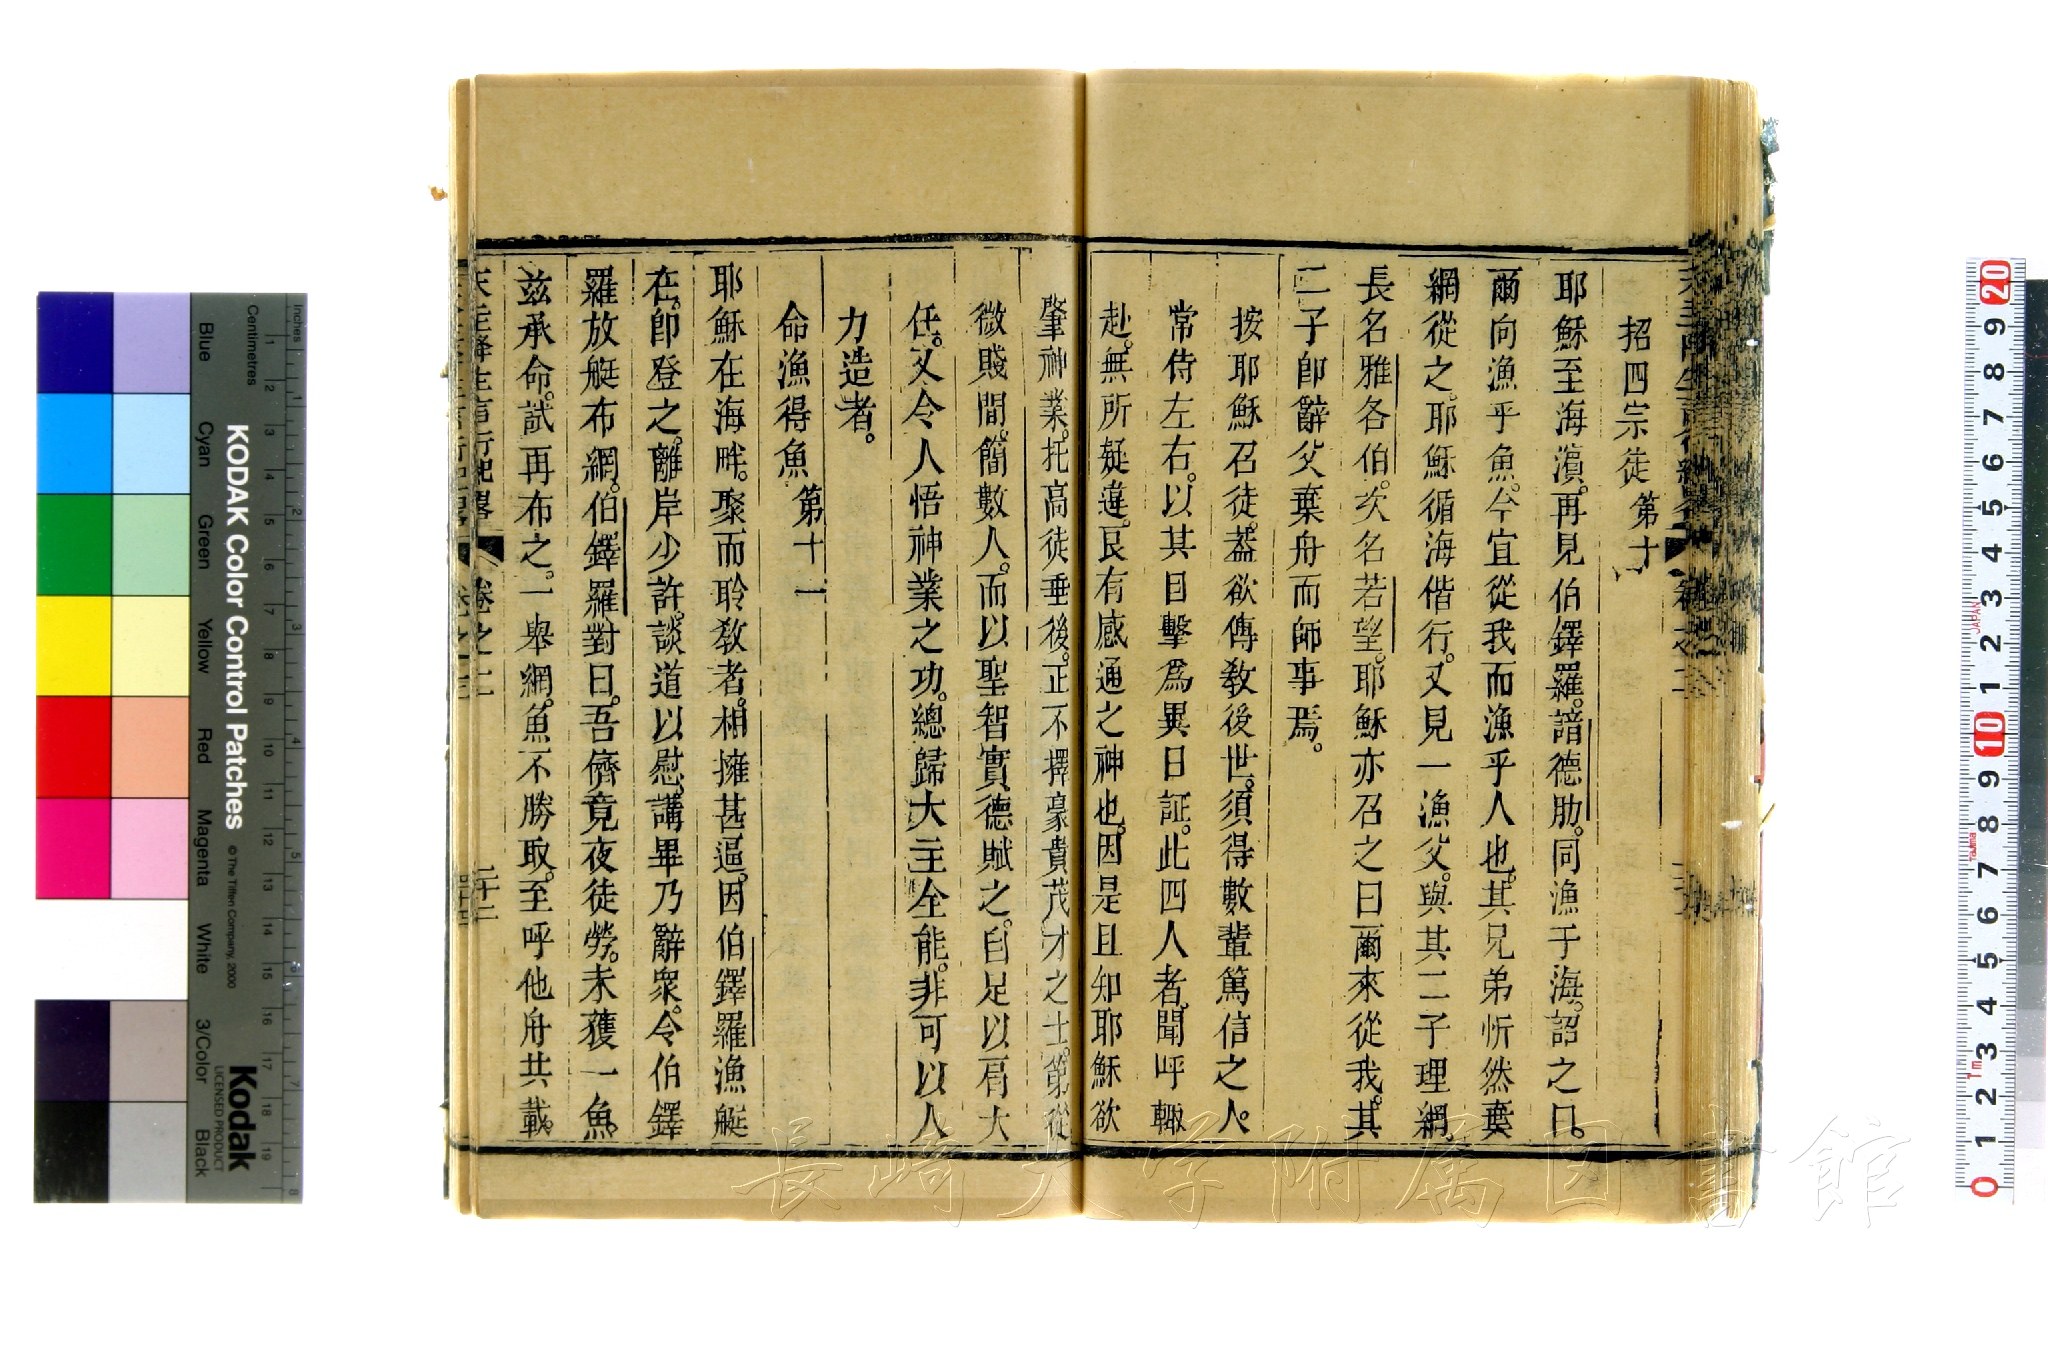 招四宗徒 第十
耶穌至海濵。再見伯鐸羅。諳德肋。同漁于海。詔之曰。
爾向漁乎魚。今宜從我而漁乎人也。其兄弟忻然棄
網從之。耶穌循海偕行。又見一漁父。與其二子理網。
長名雅各伯。次名若望。耶穌亦召之曰爾來從我。其
二子卽辭父棄舟而師事焉。
按耶穌召徒。葢欲傳敎後世。須得數輩篤信之人。
常侍左右。以其目擊爲異日証。此四人者。聞呼輙
赴。無所疑違。艮有感通之神也。因是且知耶穌欲
肇神業。托高徒垂後。正不擇豪貴茂才之士。第從
微賤間。簡數人。而以聖智實德賦之。自足以肩大
任。又令人悟神業之功。總歸大主全能。非可以人
力造者。
命漁得魚 第十一
耶穌在海畔。聚而聆敎者。相擁甚逼。因伯鐸羅漁艇
在。卽登之。離岸少許。談道以慰。講畢乃辭衆。令伯鐸
羅放艇布網。伯鐸羅對曰。吾儕竟夜徒勞。未獲一魚。
兹承命。試再布之。一舉網。魚不勝取。至呼他舟共載。
天主降生言行紀畧 卷之二 二十二
KODAK Color Control Patches
© The Tiffen Company, 2000
Kodak
LICENSED PRODUCT
Centimetres
Inches
Blue
Cyan
Green
Yellow
Red
Magenta
White
3/Color
Black
長崎大学附属図書館